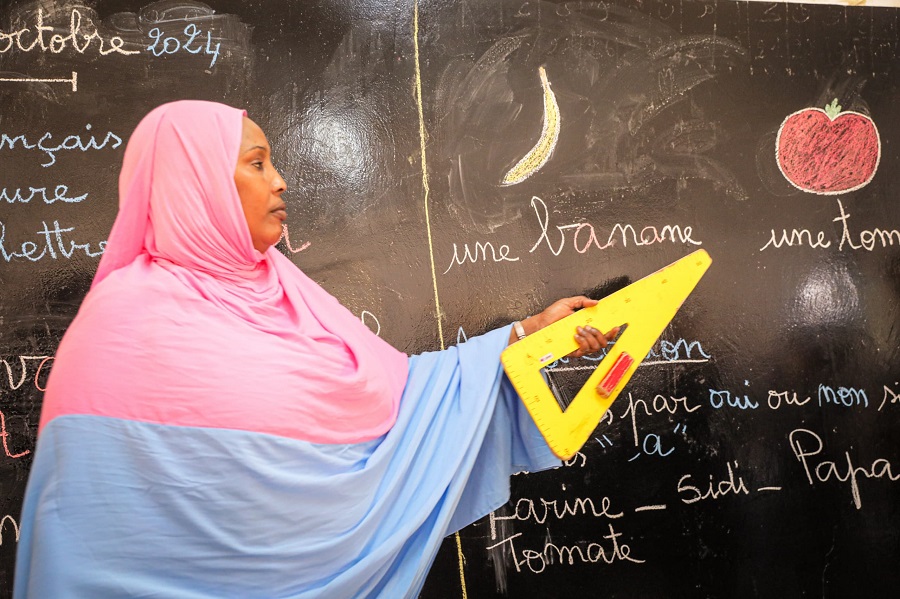 octobre 2024
nçais
ure
lettre
une banane
une tom
par oui ou non si
"a"
Farine _ Sidi _ Papa
Tomate